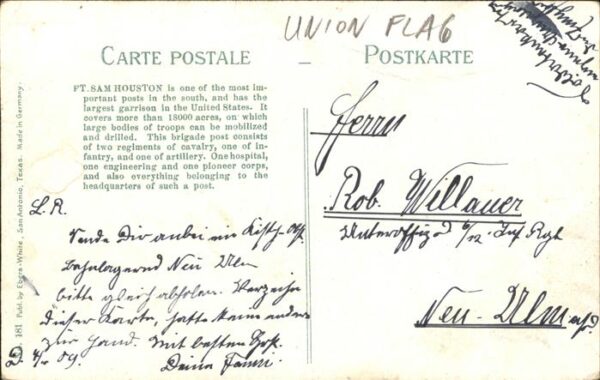 UNION FLAG
CARTE POSTALE – POSTKARTE
FT. SAM HOUSTON is one of the most im-
portant posts in the south, and has the
largest garrison in the United States. It
covers more than 18000 acres, on which
large bodies of troops can be mobilized
and drilled. This brigade post consists
of two regiments of cavalry, one of in-
fantry, and one of artillery. One hospital,
one engineering and one pioneer corps,
and also everything belonging to the
headquarters of such a post.
D. 181 Publ. by Ebers-White, San Antonio, Texas. Made in Germany.
L. R.
Sende Dir anbei ein
Bahnlagernd Neu Ulm
bitte gleich abholen. Verzeihe
dieser Karte, hatte keine andere
zur Hand. Mit besten
Deine
09.
Herrn
Rob. Willauer
Unteroffiz. 6/12. Inf Rgt
Neu-Ulm a/D.